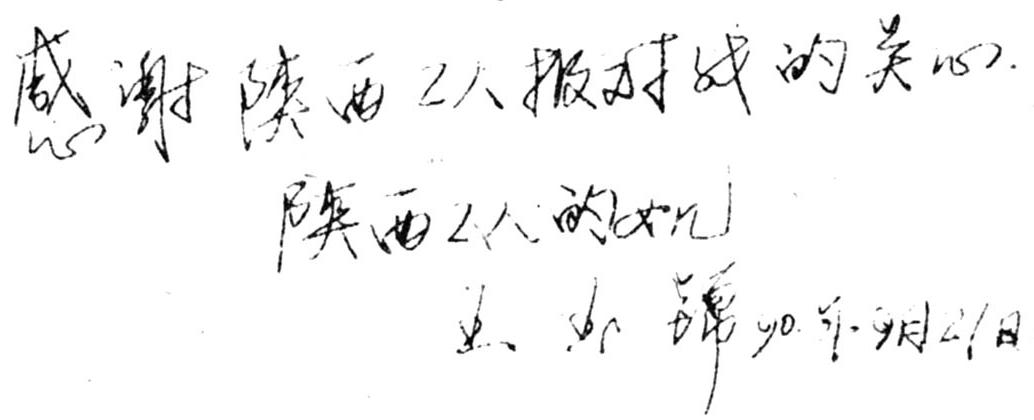 感谢陕西工人报对我的关心.
陕西工人的女儿
90年9月21日